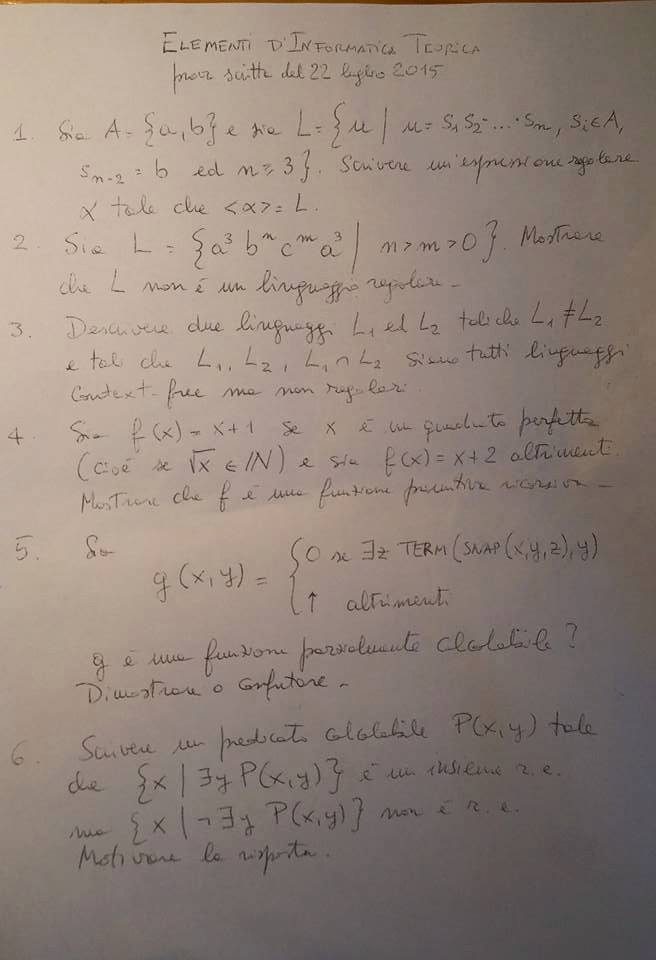 ELEMENTI D'INFORMATICA TEORICA
prova scritta del 22 luglio 2015
1. Sia A = {a, b} e sia L = {u | u = s₁s₂·...·sₙ, sᵢ∈A,
sₙ₋₂ = b ed n ≥ 3}. Scrivere un'espressione regolare
α tale che <α> = L.
2. Sia L = {a³ bⁿ cᵐ a³ | n > m > 0}. Mostrare
che L non è un linguaggio regolare.
3. Descrivere due linguaggi L₁ ed L₂ tali che L₁ ≠ L₂
e tali che L₁, L₂, L₁ ∩ L₂ siano tutti linguaggi
context-free ma non regolari.
4. Sia f(x) = x+1 se x è un quadrato perfetto
(cioè se √x ∈ ℕ) e sia f(x) = x+2 altrimenti.
Mostrare che f è una funzione primitiva ricorsiva.
5. Sia
g(x,y) = { 0 se ∃z TERM(SNAP(x,y,z),y)
↑ altrimenti
g è una funzione parzialmente calcolabile?
Dimostrare o confutare.
6. Scrivere un predicato calcolabile P(x,y) tale
che {x | ∃y P(x,y)} è un insieme r.e.
ma {x | ¬∃y P(x,y)} non è r.e.
Motivare la risposta.